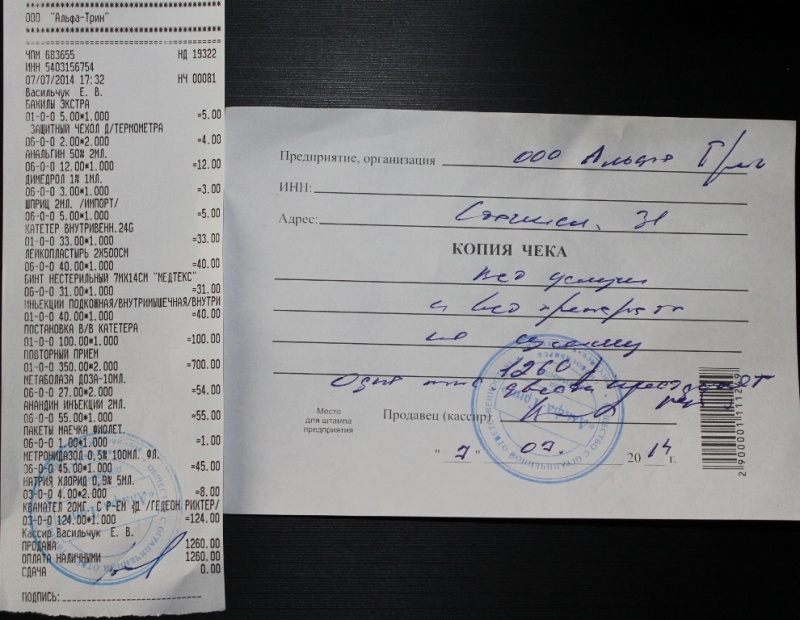 ООО "Альфа-Трин"
ЧПМ 683655 НД 19322
ИНН 5403156754
07/07/2014 17:32 НЧ 00081
Васильчук Е. В.
БАХИЛЫ ЭКСТРА
01-0-0 5.00*1.000 =5.00
ЗАЩИТНЫЙ ЧЕХОЛ Д/ТЕРМОМЕТРА
06-0-0 2.00*2.000 =4.00
АНАЛЬГИН 50% 2МЛ.
06-0-0 12.00*1.000 =12.00
ДИМЕДРОЛ 1% 1МЛ.
06-0-0 3.00*1.000 =3.00
ШПРИЦ 2МЛ. /ИМПОРТ/
06-0-0 5.00*1.000 =5.00
КАТЕТЕР ВНУТРИВЕНН.24G
01-0-0 33.00*1.000 =33.00
ЛЕЙКОПЛАСТЫРЬ 2Х500СМ
06-0-0 40.00*1.000 =40.00
БИНТ НЕСТЕРИЛЬНЫЙ 7МХ14СМ "МЕДТЕКС"
06-0-0 31.00*1.000 =31.00
ИНЬЕКЦИИ ПОДКОЖНАЯ/ВНУТРИМЫШЕЧНАЯ/ВНУТРИ
01-0-0 40.00*1.000 =40.00
ПОСТАНОВКА В/В КАТЕТЕРА
01-0-0 100.00*1.000 =100.00
ПОВТОРНЫЙ ПРИЕМ
01-0-0 350.00*2.000 =700.00
МЕТАБОЛАЗА ДОЗА-10МЛ.
06-0-0 27.00*2.000 =54.00
АНАНДИН ИНЪЕКЦИИ 2МЛ.
06-0-0 55.00*1.000 =55.00
ПАКЕТЫ МАЕЧКА ФИОЛЕТ.
06-0-0 1.00*1.000 =1.00
МЕТРОНИДАЗОЛ 0,5% 100МЛ. ФЛ.
06-0-0 45.00*1.000 =45.00
НАТРИЯ ХЛОРИД 0,9% 5МЛ.
03-0-0 4.00*2.000 =8.00
КВАМАТЕЛ 20МГ. С Р-ЕМ /ГЕДЕОН РИХТЕР/
03-0-0 124.00*1.000 =124.00
Кассир Васильчук Е. В.
ПРОДАЖА 1260.00
ОПЛАТА НАЛИЧНЫМИ 1260.00
СДАЧА 0.00
ПОДПИСЬ:
Предприятие, организация ООО Альфа Трин
ИНН:
Адрес: 31
КОПИЯ ЧЕКА
вет услуги
и вет препараты
по
1260
Одна тыс двести шестьдесят
Место для штампа предприятия
Продавец (кассир)
" 7 " 07. 2014 г.
2900001111249